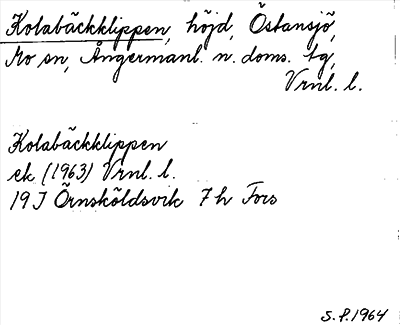 Kolabäckklippen, höjd, Östansjö,
Mo sn, Ångermanl. n. doms. tg,
Vrnl. l.
Kolabäckklippen
ek (1963) Vrnl. l.
19 J Örnsköldsvik 7 h Fors
S. f. 1964